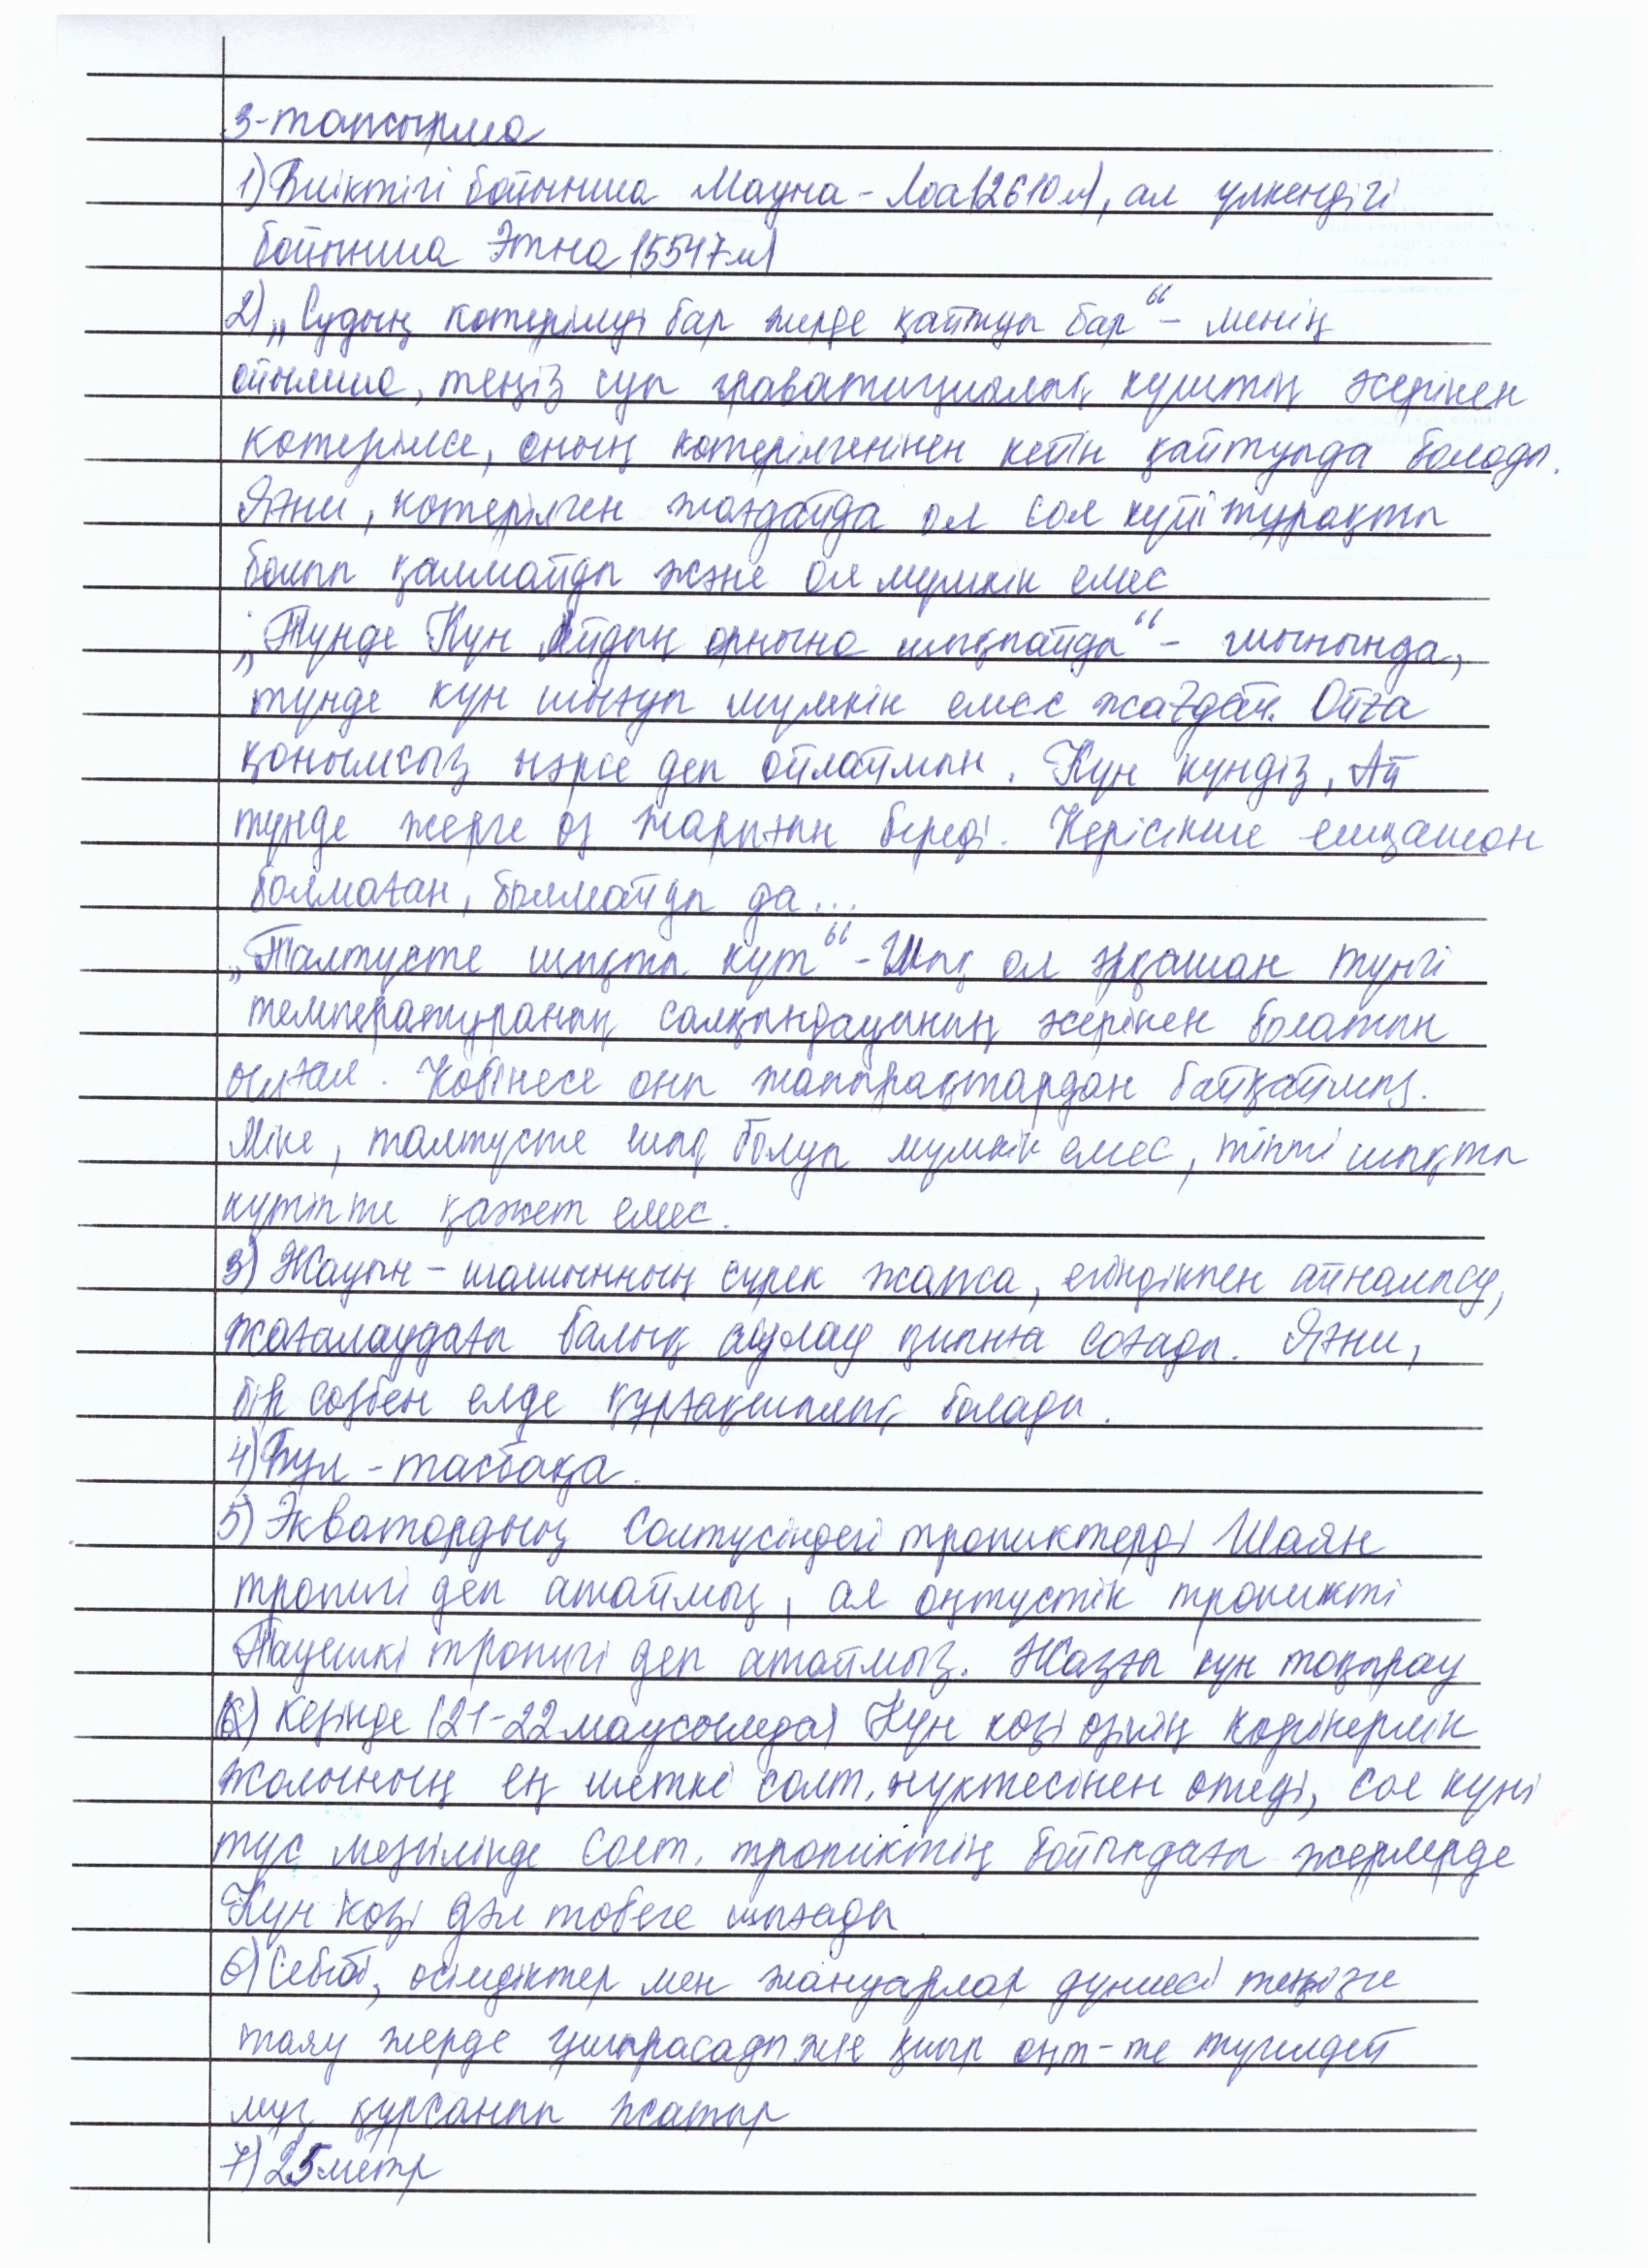 3-тапсырма
1) Биіктігі бойынша Мауна-Лоа (2610м), ал үлкендігі
бойынша Этна (5547м)
2) „Судың көтерілуі бар жерде қайтуы бар“ - менің
ойымша, теңіз суы граватициялық күштің әсерінен
көтерілсе, оның көтерілгенінен кейін қайтуыда болады.
Яғни, көтерілген жағдайда ол сол күйі тұрақты
болып қалмайды және ол мүмкін емес
„Түнде Күн Айдың орнына шықпайды“ - шынында,
түнде күн шығуы мүмкін емес жағдай. Ойға
қонымсыз нәрсе деп ойлаймын. Күн күндіз, Ай
түнде жерге өз жарығын береді. Керісінше ешқашан
болмаған, болмайды да...
„Талтүсте шықты күт“ - Шық ол әрқашан түнгі
температураның салқындауының әсерінен болатын
Көбінесе оны жапырақтардан байқаймыз.
Міне, талтүсте шық болуы мүмкін емес, тіпті шықты
күтіпте қажет емес.
3) Жауын-шашынның сирек жауса, егіндікпен айналысу,
жағалаудағы балық аулау қиынға соғады. Яғни,
бір сөзбен елде құрғақшылық болады.
4) Бұл - тасбақа.
5) Экватордың Солтүсіндегі тропиктерді Шаян
тропигі деп атаймыз, ал оңтүстік тропикті
Тауешкі тропигі деп атаймыз. Жазғы күн тоқырау
кезінде (21-22 маусымда) Күн көзі өзінің көрінерлік
жолының ең шеткі солт. нүктесінен өтеді, сол күні
түс мезгілінде Солт. тропиктің бойындағы жерлерде
Күн көзі дәл төбеге шығады
6) Себебі, өсімдіктер мен жануарлар дүниесі теңізге
таяу жерде ұшырасады және қиыр оңт-те түгелдей
мұз құрсанып жатыр
7) 25метр